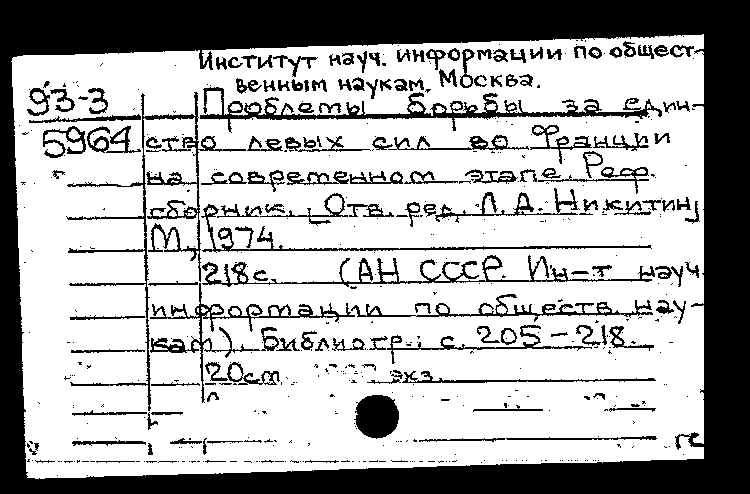 Институт науч. информации по общест-
венным наукам. Москва.
93-3
Проблемы борьбы за един-
5964
ство левых сил во Франции
на современном этапе. Реф.
сборник. [Отв. ред. Л. Д. Никитин]
М., 1974.
218с. (АН СССР. Ин-т науч.
информации по обществ. нау-
кам). Библиогр.: с. 205-218.
20см экз.